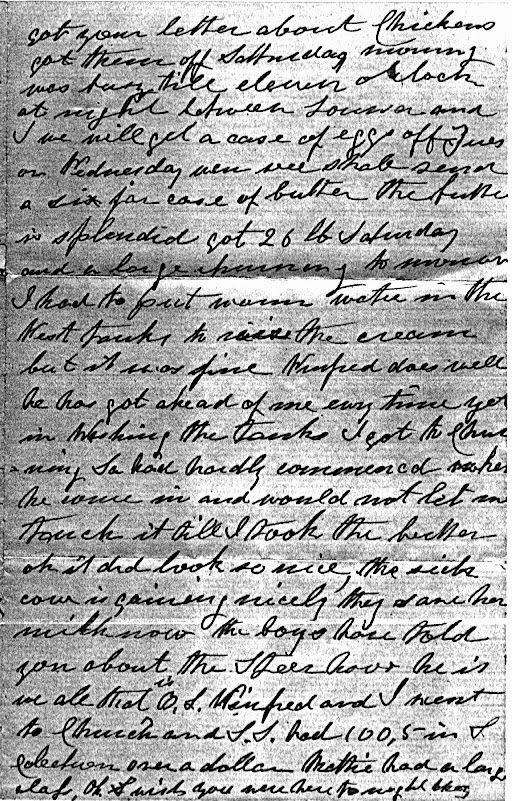 got your letter about Chickens
got them off Satturday morning
was busy till eleven oclock
at night between and
I we will get a case of eggs off Tues
or Wednesday wen wee shall send
a six jar case of butter the butte
is splendid got 26 lb Saturday
and a large churning to morrow
I had to put warm water in the
West tanks to raise the cream
but it was fine Winfred does well
he has got ahead of me evry time yet
in Washing the Tanks I got to Chur
ning Sa had hardly commencd when
he come in and would not let me
touch it till I took the butter
oh it did look so nice, the sick
cow is gaining nicely they save her
milk now the boys have told
you about the Steer how he is
we all that is O, S. Winfred and I went
to Church and S.S. had 100,5 in S.
colection over a dollar Mattie had a large
class, Oh I wish you were here to night